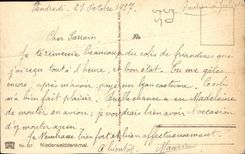 Vendredi - 21 Octobre 1927
Cher Parrain
Je te remercie beaucoup du colis de friandises que
j'ai reçu tout à l'heure, en bon état. Tu me gâtes
encore, après m'avoir payé un bon costume. Ce colis
m'a bien fait plaisir. Quelle chance a eu Madeleine
de monter en avion; je voudrais bien avoir l'occasion
d'y monter aussi.
Je t'embrasse bien fort et bien affectueusement.
A bientôt.
No. 347 Niederwalddenkmal.